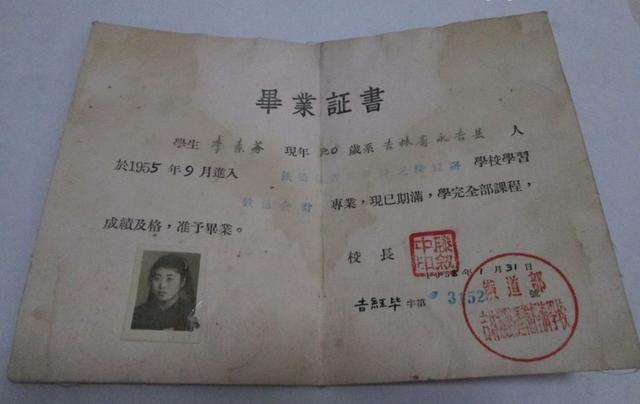 畢業証書
學生 李素芬 現年 20 歲系 吉林省永吉县 人
於1955年9月進入 學校學習
鉄道会計 專業，現已期滿，學完全部課程，
成績及格，准予畢業。
校長
年1月31日
吉経毕字第 3152 號
鐵道部